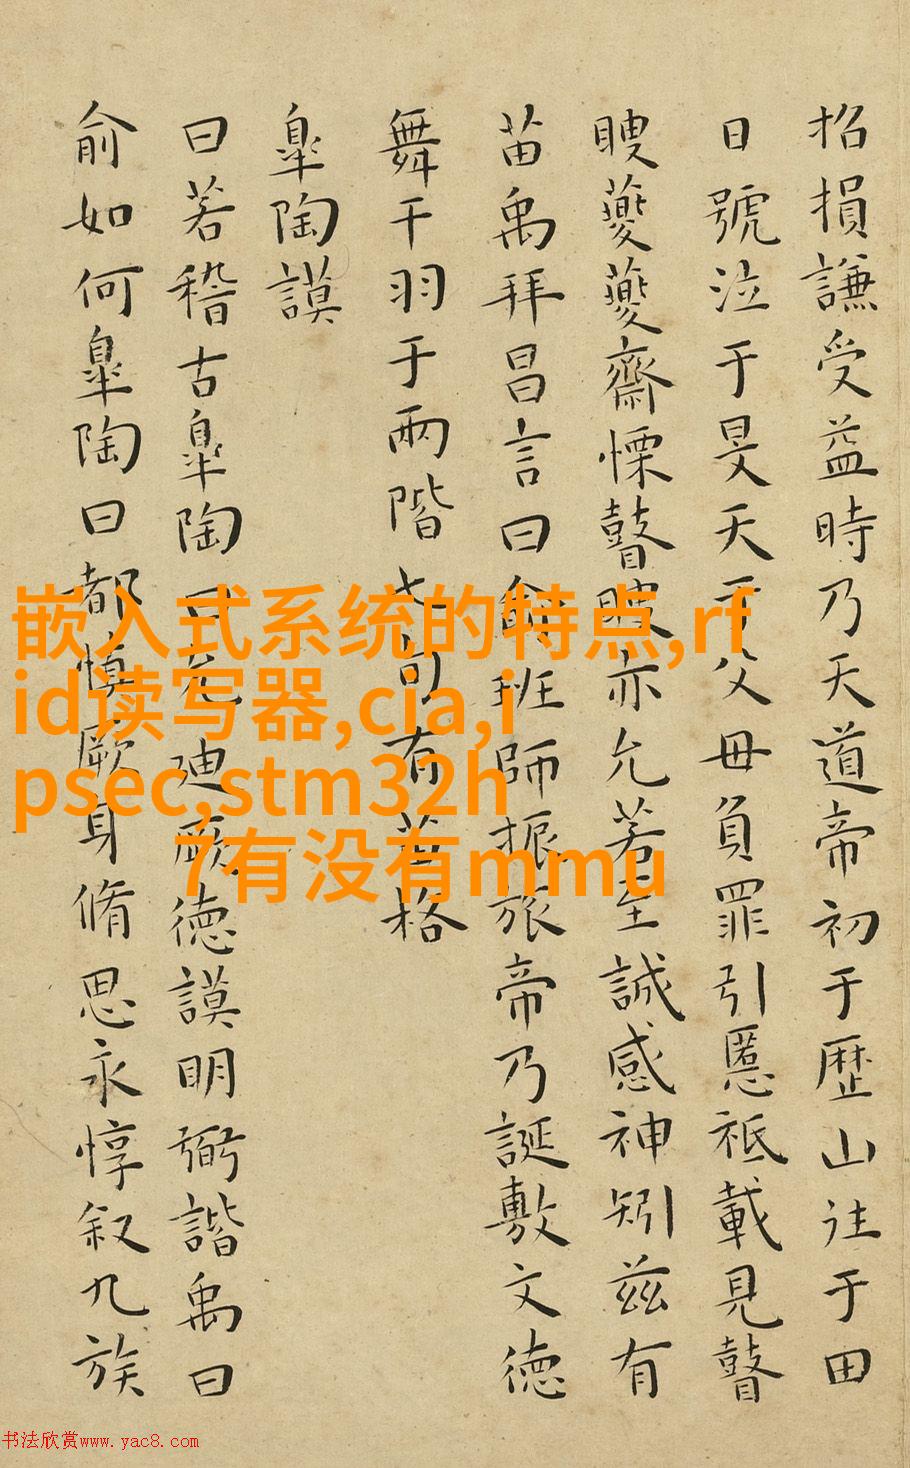 招損謙受益時乃天道帝初于歷山往于田
日號泣于旻天于父母負罪引慝祗載見瞽
瞍夔夔齋慄瞽瞍亦允若至諴感神矧兹有
苗禹拜昌言曰俞班師振旅帝乃誕敷文德
舞干羽于兩階七旬有苗格
皋陶謨
曰若稽古皋陶曰允迪厥德謨明弼諧禹曰
俞如何皋陶曰都慎厥身脩思永惇叙九族
嵌入式系统的特点,rf
id读写器,cia,i
psec,stm32h
7有没有mmu
书法欣赏www.yac8.com